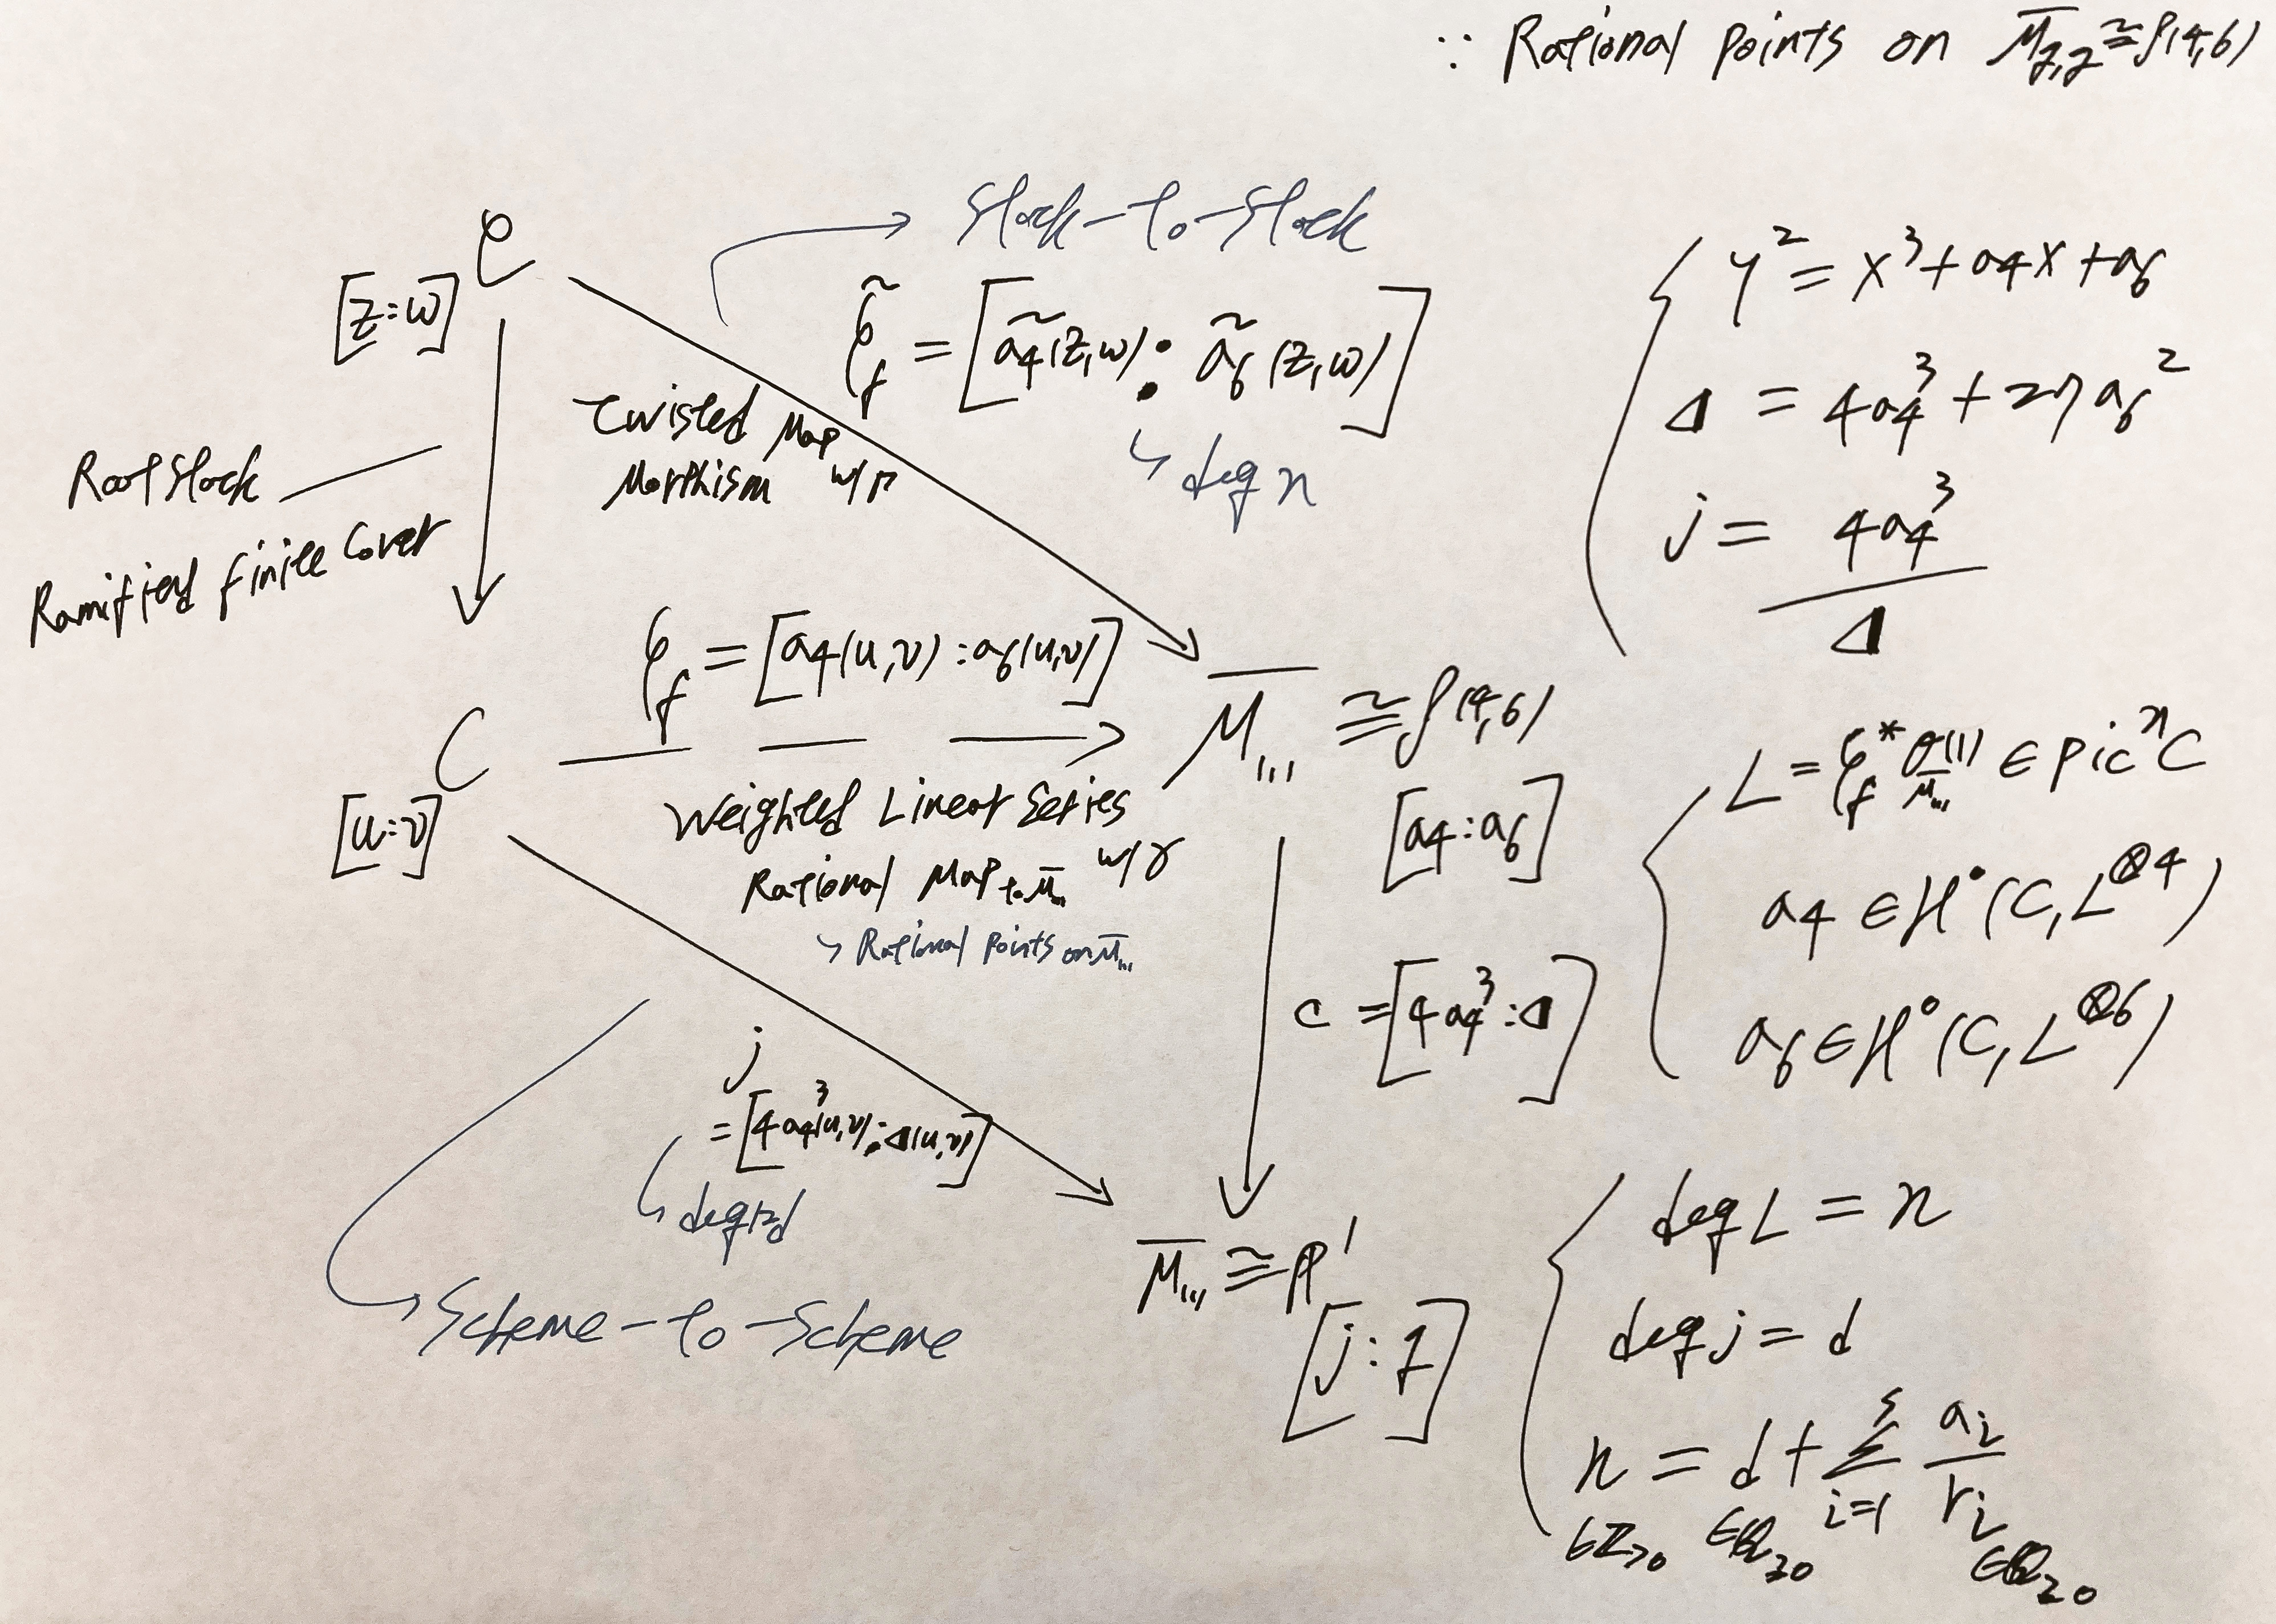 ∵ Rational points on M̄₁,₁ ≅ P(4,6)
Stack-to-Stack
𝒞
[z:w]
φ̃_f = [ã4(z,w) : ã6(z,w)]
↳ deg n
Twisted Map
Morphism w/ Γ
Root Stack
Ramified finite Cover
φ_f = [a4(u,v) : a6(u,v)]
C
[u:v]
M̄₁,₁ ≅ P(4,6)
[a4:a6]
Weighted Linear Series
Rational Map to M̄₁,₁ w/ γ
↳ Rational points on M̄₁,₁
c = [4a4³ : Δ]
j
= [4a4³(u,v) : Δ(u,v)]
↳ deg 12d
Scheme-to-Scheme
M̄₁,₁ ≅ P¹
[j:1]
y² = x³ + a4x + a6
Δ = 4a4³ + 27a6²
j = 4a4³ / Δ
L = φ_f* O_M̄₁,₁(1) ∈ Picⁿ C
a4 ∈ H⁰(C, L^⊗4)
a6 ∈ H⁰(C, L^⊗6)
deg L = n
deg j = d
n = d + Σ_{i=1}^{s} a_i / r_i
∈ Z≥0 ∈ Q≥0 ∈ Q≥0